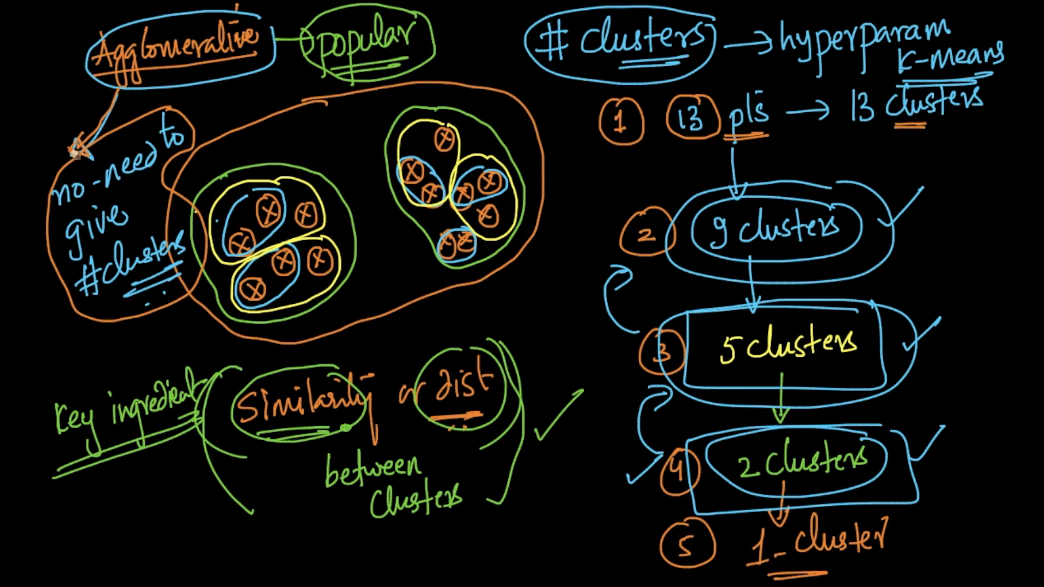 Agglomerative popular
no-need to
give
#clusters
Key ingredient
Similarity or dist
between
clusters
# clusters → hyperparam
K-means
1 13 pts → 13 clusters
2 9 clusters
3 5 clusters
4 2 clusters
5 1-cluster